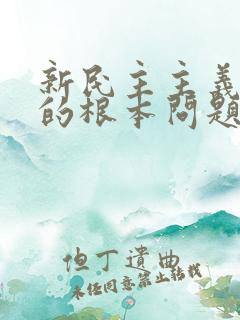 新民主主义
的根本问题
但丁遗曲
未经同意禁止转载